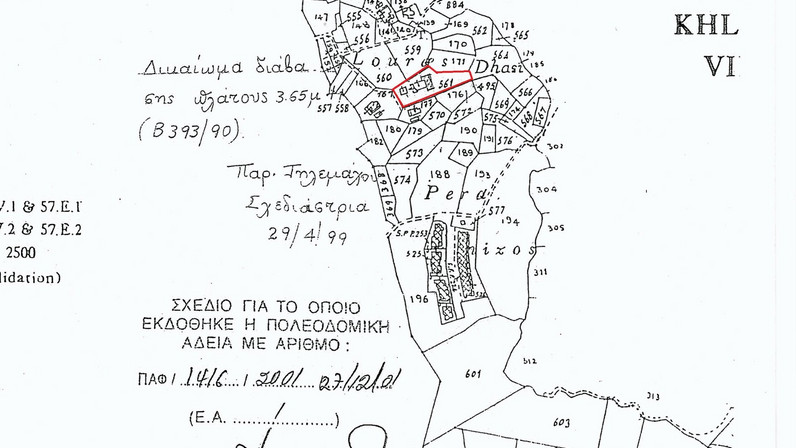 KHL
VI
Δικαίωμα διάβα
σης πλάτους 3.65μ
(Β393/90).
Παρ. Τηλεμάχου
Σχεδιάστρια
29/4/99
V.1 & 57.E.1
7.2 & 57.E.2
2500
lidation)
ΣΧΕΔΙΟ ΓΙΑ ΤΟ ΟΠΟΙΟ
ΕΚΔΟΘΗΚΕ Η ΠΟΛΕΟΔΟΜΙΚΗ
ΑΔΕΙΑ ΜΕ ΑΡΙΘΜΟ:
ΠΑΦ/1416/2001 27/12/01
(Ε.Α. ....../............)
384
147
555
169
562
178
565
556
559
170
Louras
171
Dhasi
560
561
495
185
566
557
558
177
176
569
567
570
572
575
568
180
179
190
191
576
182
573
189
302
574
188
193
304
368
369
Pera
577
194
S.P.P.253
305
525
nizos
311
196
601
312
313
603